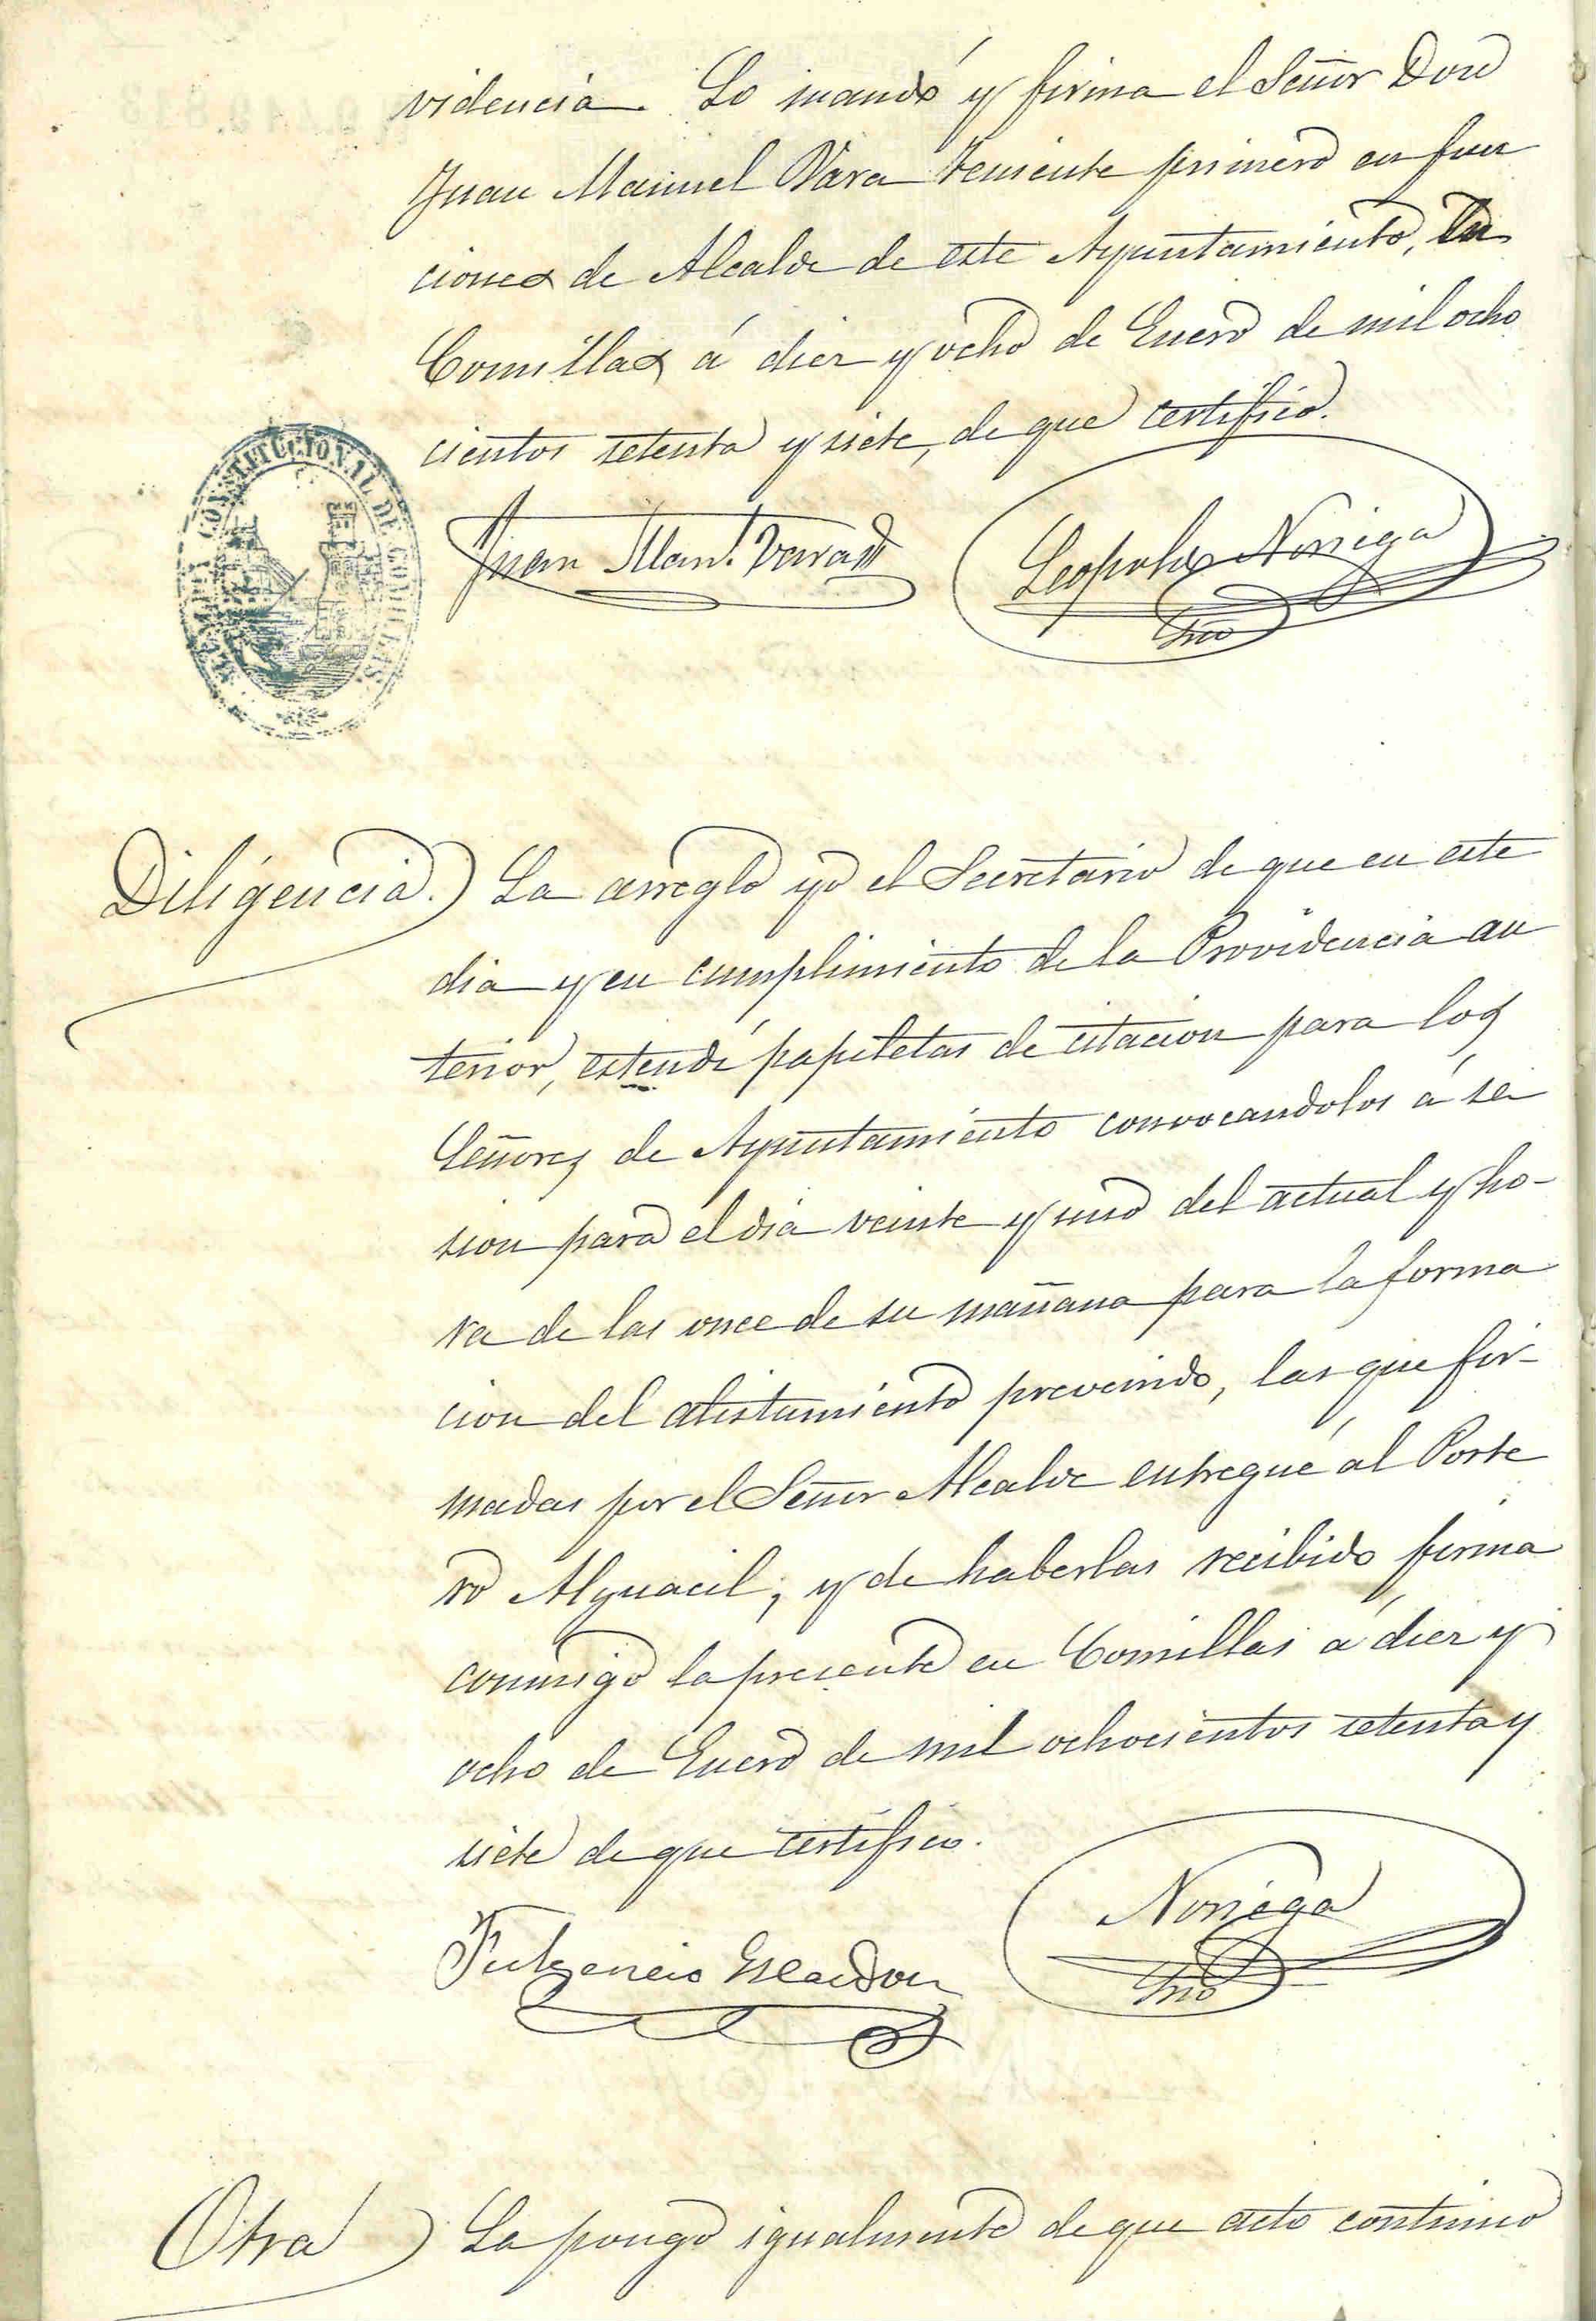 videncia. Lo mandó y firma el Señor Don
Juan Manuel Vara teniente primero en fun
ciones de Alcalde de este Ayuntamiento, En
Comillas á diez y ocho de Enero de mil ocho
cientos setenta y siete, de que certifico.
CONSTITUCIONAL DE COMILLAS.
Juan Man.l Vara
Leopoldo Noriega
Srio
Diligencia.) La arreglo yo el Secretario de que en este
dia y en cumplimiento de la Providencia an
terior, estendí papeletas de citacion para los
Señores de Ayuntamiento convocandolos á se
sion para el dia veinte y uno del actual y ho-
ra de las once de su mañana para la forma
cion del alistamiento prevenido, las que fir-
madas por el Señor Alcalde entregué al Porte
ro Alguacil; y de haberlas recibido firma
conmigo la presente en Comillas á diez y
ocho de Enero de mil ochocientos setenta y
siete de que certifico.
Fulgencio Escandon
Noriega
Srio
Otra) La pongo igualmente de que acto continuo